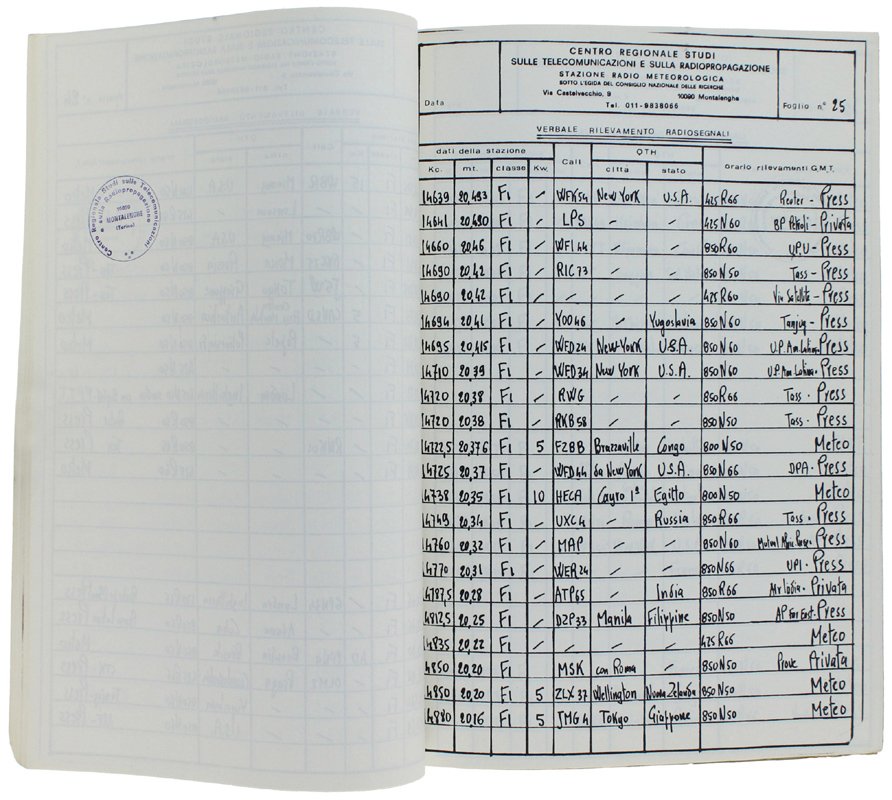 Centro Regionale Studi sulle Telecomunicazioni e sulla Radiopropagazione
10090
MONTALENGHE
(Torino)
CENTRO REGIONALE STUDI
SULLE TELECOMUNICAZIONI E SULLA RADIOPROPAGAZIONE
STAZIONE RADIO METEOROLOGICA
SOTTO L'EGIDA DEL CONSIGLIO NAZIONALE DELLE RICERCHE
Via Castelvecchio, 9 10090 Montalenghe
Tel. 011-9839066
Data
Foglio n° 25
VERBALE RILEVAMENTO RADIOSEGNALI
dati della stazione Call QTH orario rilevamenti G.M.T.
Kc. mt. classe Kw. citta stato
14639 20,493 F1 / WFK54 New York U.S.A. 425R66 Reuter - Press
14641 20,490 F1 / LPS / / 425N60 BP Petroli - Privata
14660 20,46 F1 / WFL44 / / 850R60 UPU - Press
14690 20,42 F1 / RIC73 / / 850N50 Tass - Press
14690 20,42 F1 / / / / 425R60 Via Satellite - Press
14694 20,41 F1 / YOO46 / Yugoslavia 850N60 Tanjug - Press
14695 20,415 F1 / WED24 New York U.S.A. 850N60 U.P. Am. Latina - Press
14710 20,39 F1 / WED34 New York U.S.A. 850N60 U.P. Am. Latina - Press
14720 20,38 F1 / RWG / / 850R66 Tass - Press
14720 20,38 F1 / RKB58 / / 850N50 Tass - Press
14722,5 20,376 F1 5 FZBB Brazzaville Congo 800N50 Meteo
14725 20,37 F1 / WED44 New York U.S.A. 850N66 DPA - Press
14738 20,35 F1 10 HECA Cayro 1ª Egitto 800N50 Meteo
14749 20,34 F1 / UXC4 / Russia 850R66 Tass - Press
14760 20,32 F1 / MAP / / 850N60 Press
14770 20,31 F1 / WER24 / / 850N66 UPI - Press
14787,5 20,28 F1 / ATP65 / India 850R66 Air India - Privata
14812,5 20,25 F1 / DZP33 Manila Filippine 850N50 AP Far East - Press
14835 20,22 F1 / / / / 425R66 Meteo
14850 20,20 F1 / MSK con Roma / 850N50 Prove Privata
14850 20,20 F1 5 ZLX37 Wellington Nuova Zelanda 850N50 Meteo
14880 20,16 F1 5 JMG4 Tokyo Giappone 850N50 Meteo